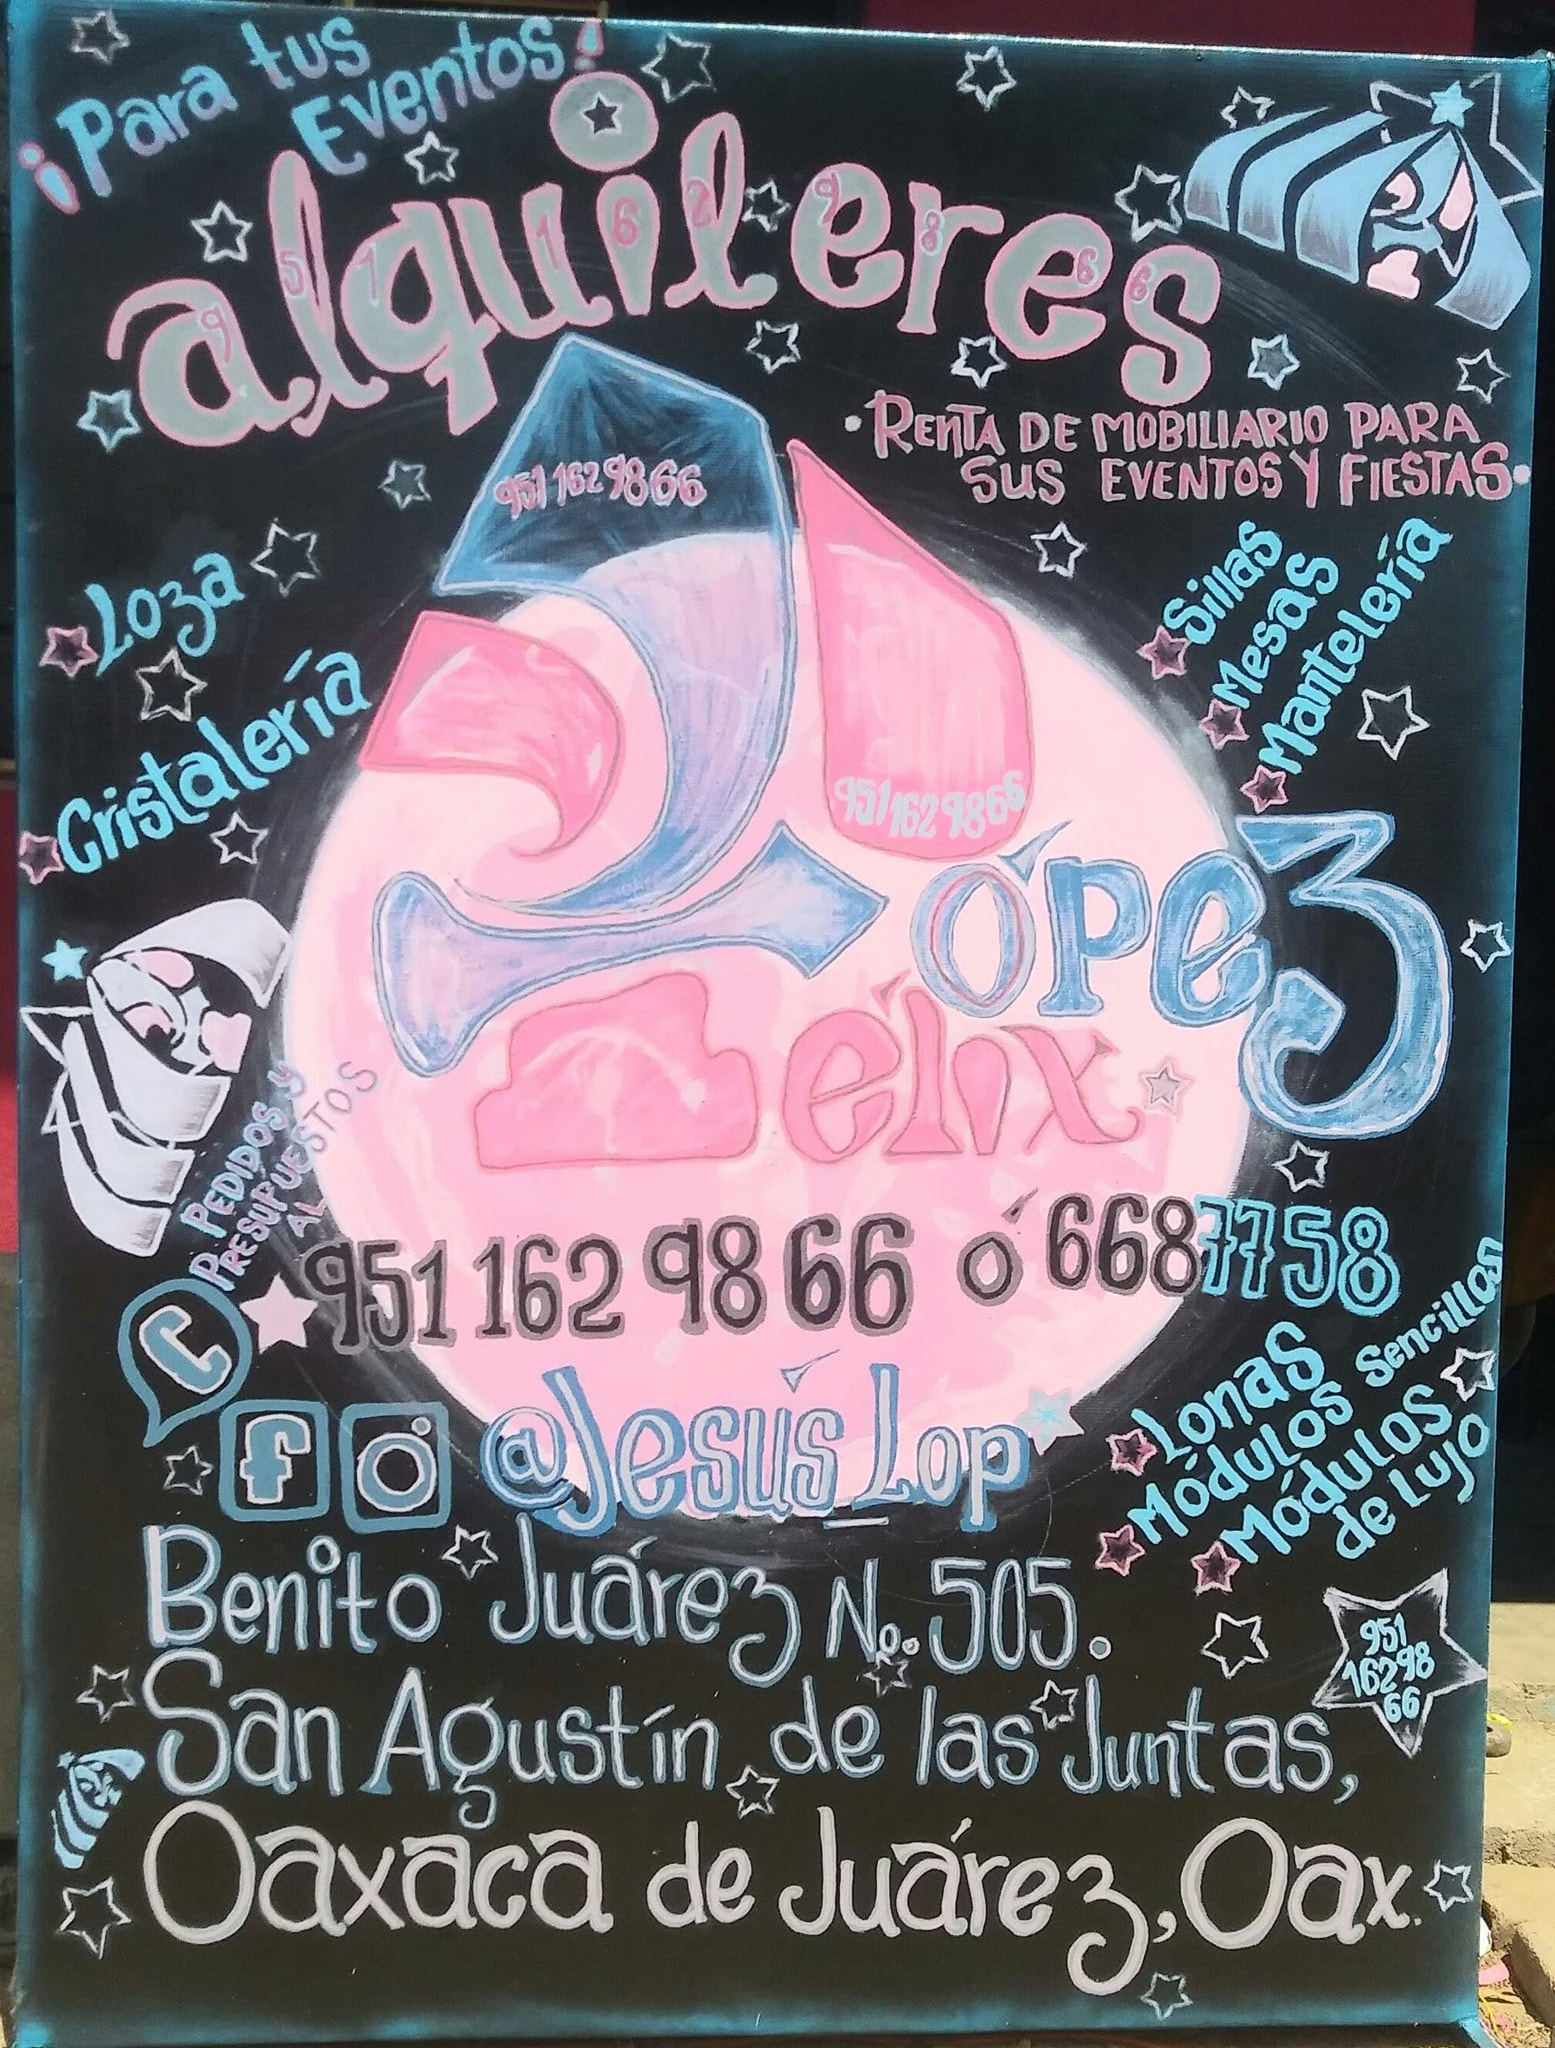 ¡Para tus
Eventos!
alquileres
9 5 1 1 6 2 9 8 6 6
• RENTA DE MOBILIARIO PARA
SUS EVENTOS Y FIESTAS •
951 162 98 66
Loza
Cristalería
Sillas
Mesas
Mantelería
951 162 98 66
López
Félix
PEDIDOS Y
PRESUPUESTOS
AL
951 162 98 66 ó 668 7758
@Jesús_Lop
Lonas
Módulos Sencillos
Módulos
de Lujo
Benito Juárez No. 505.
San Agustín de las Juntas,
Oaxaca de Juárez, Oax.
951
16298
66